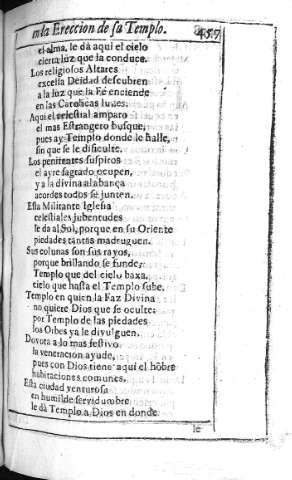 en la Ereccion de su Templo. 457
el alma, le dà aqui el cielo
cierta luz que la conduce.
Los religiosos Altares
excelsa Deidad descubren
a la luz que la Fé enciende
en las Catolicas luzes.
Aqui el celestial amparo
el mas Estrangero busque,
pues ay Templo donde le halle,
sin que se le dificulte.
Los penitentes suspiros
el ayre sagrado ocupen,
y a la divina alabança
acordes todos se junten.
Esta Militante Iglesia
celestiales jubentudes
le da al Sol, porque en su Oriente
piedades tantas madruguen.
Sus colunas son sus rayos,
porque brillando se funde,
Templo que del cielo baxa,
cielo que hasta el Templo sube.
Templo en quien la Faz Divina
no quiere Dios que se oculte,
por Templo de las piedades
los Orbes ya le divulguen.
Dovota a lo mas festivo
la veneracion ayude,
pues con Dios tiene aqui el hõbre
habitaciones comunes.
Esta ciudad venturosa
en humilde servidumbre
le dà Templo a Dios en donde
le